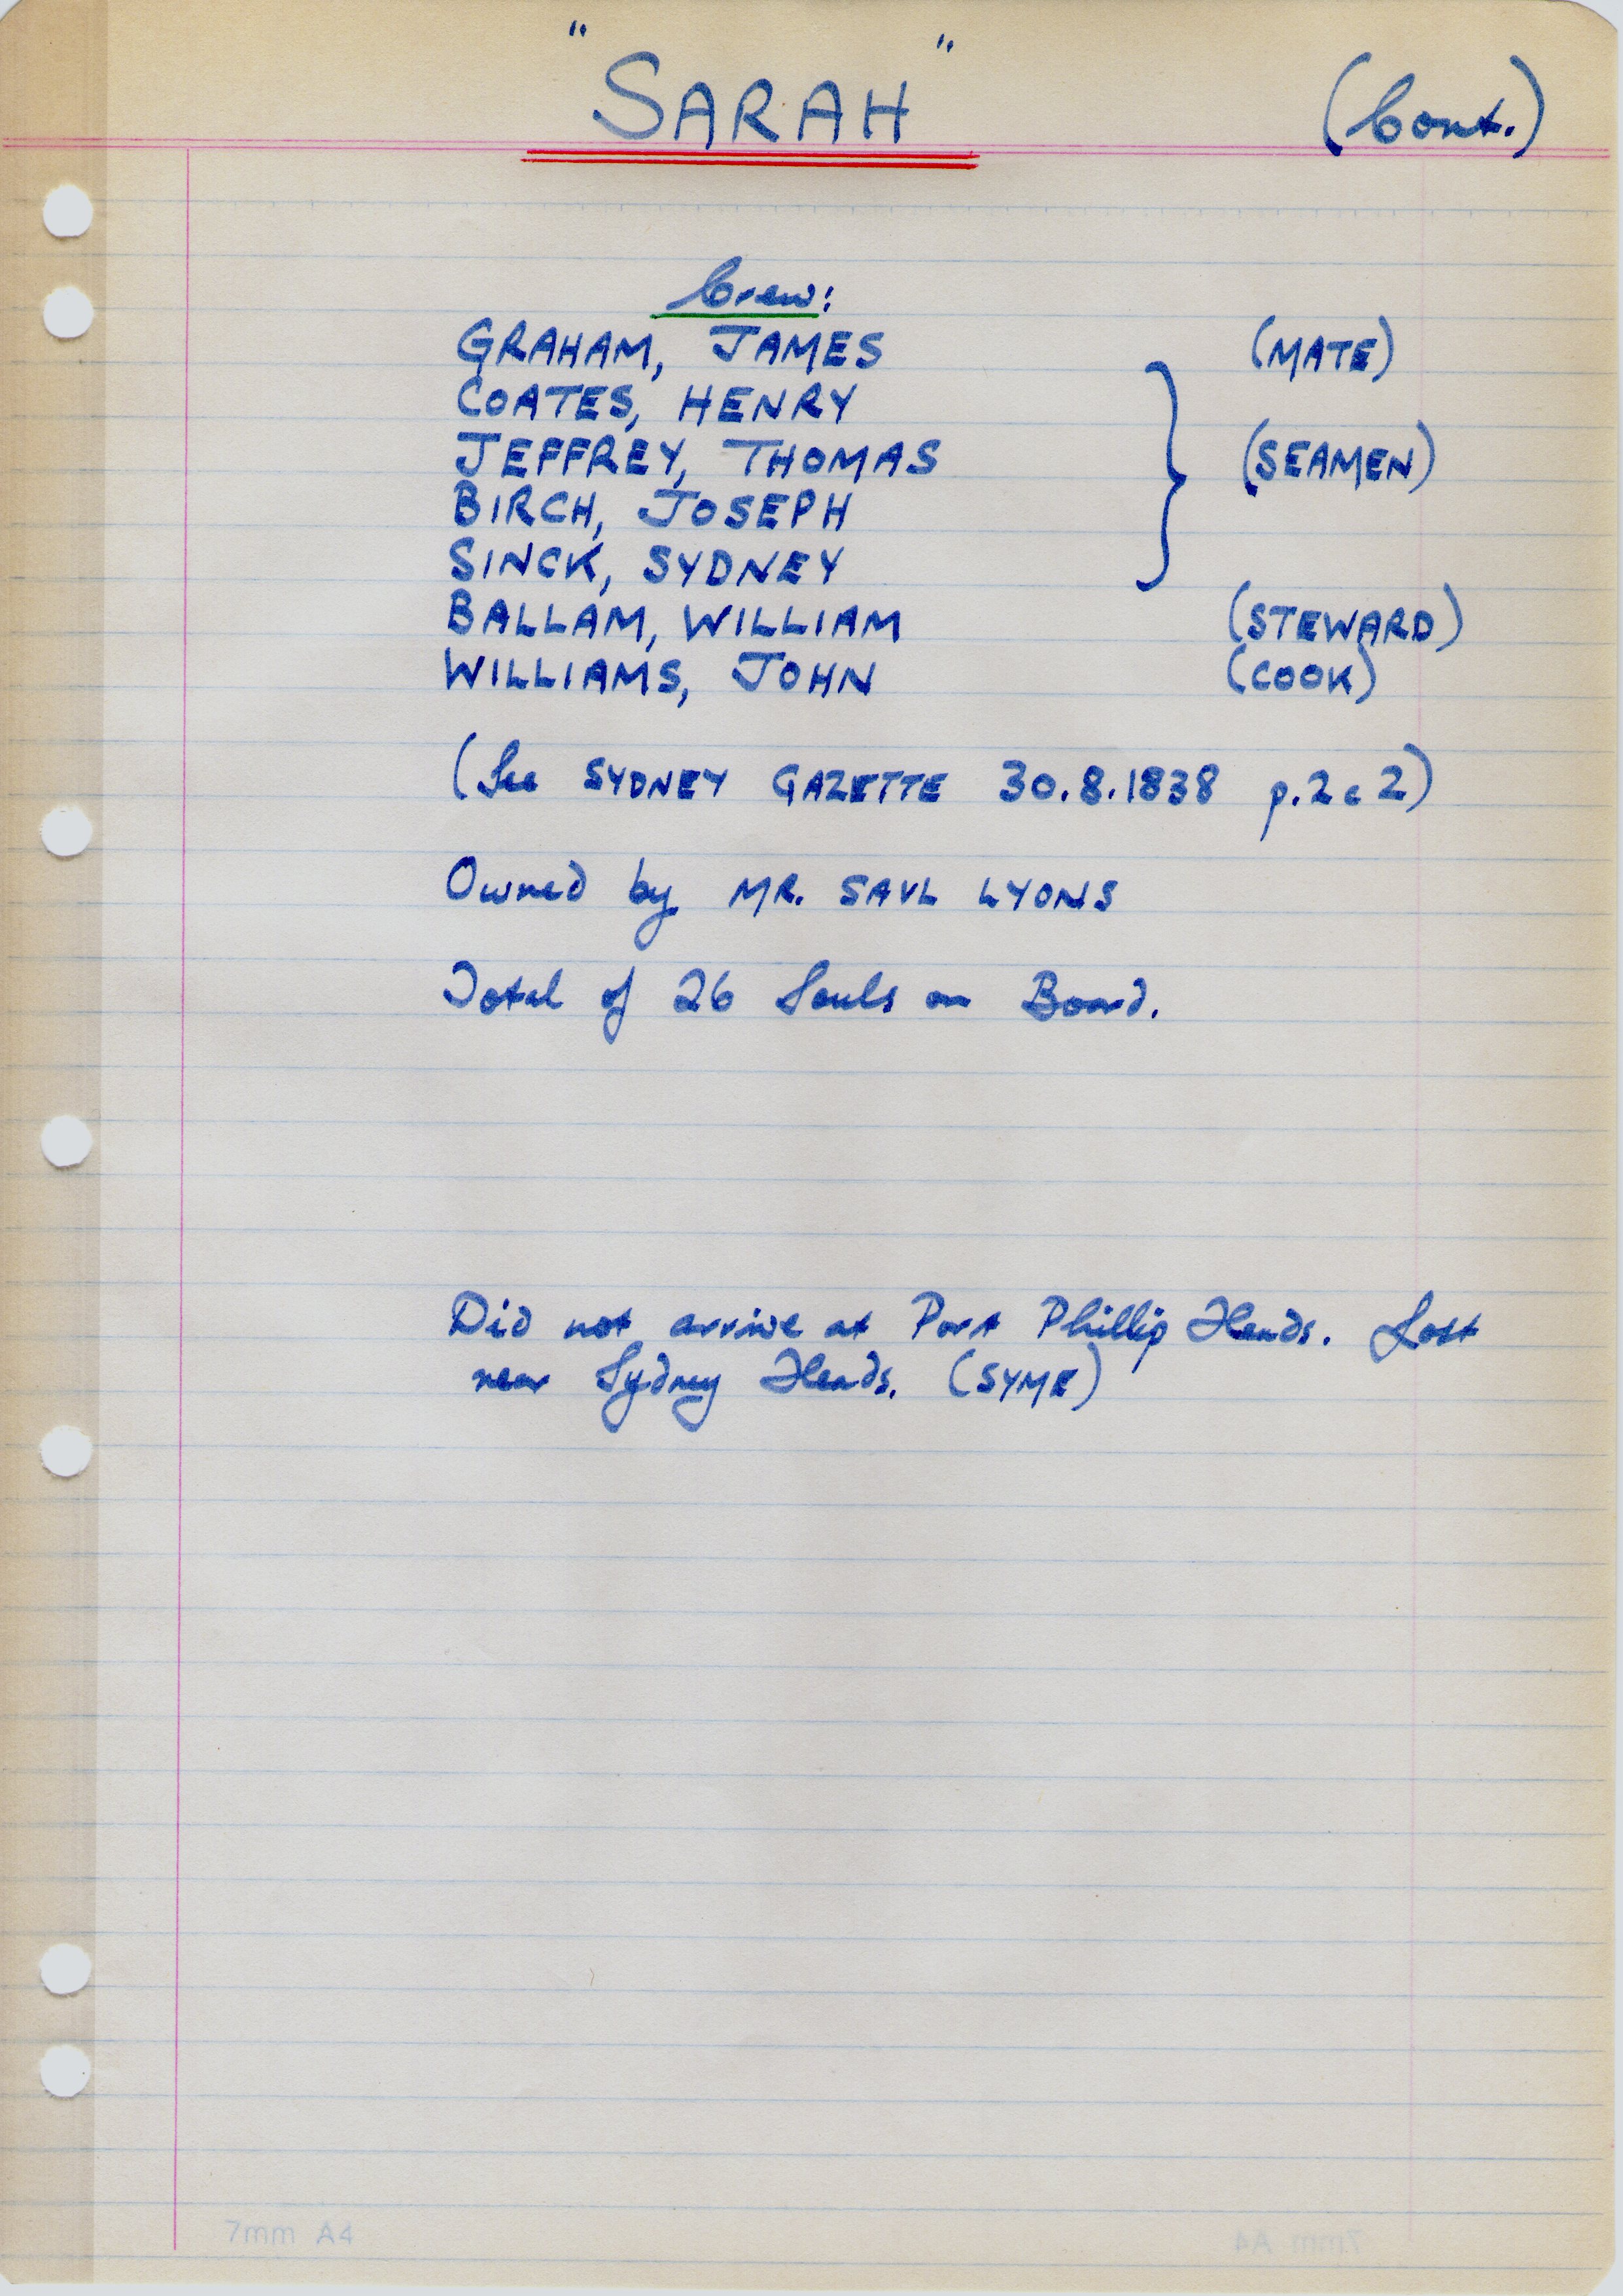 "SARAH" (Cont.)
Crew:
GRAHAM, JAMES (MATE)
COATES, HENRY
JEFFREY, THOMAS (SEAMEN)
BIRCH, JOSEPH
SINCK, SYDNEY
BALLAM, WILLIAM (STEWARD)
WILLIAMS, JOHN (COOK)
(See SYDNEY GAZETTE 30.8.1838 p.2 c 2)
Owned by MR. SAUL LYONS
Total of 26 Souls on Board.
Did not arrive at Port Phillip Heads. Lost
near Sydney Heads. (SYME)
7mm A4